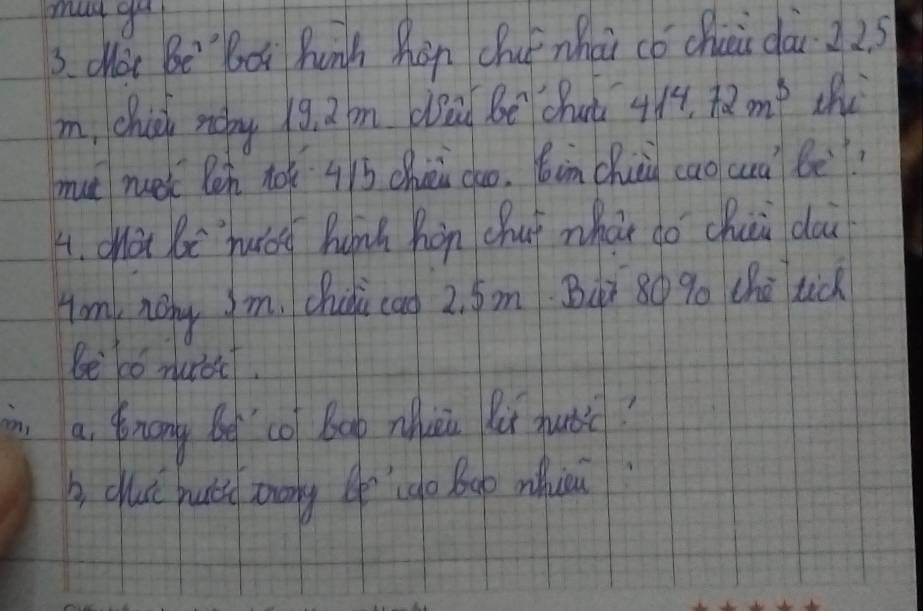 3. Một bể bơi hình hộp chữ nhật có chiều dài 22,5
m, chiều rộng 19,2 m. Nếu bể chứa 414,72 m³ thì
mực nước lên tới 4/5 chiều cao. Tìm chiều cao của bể?
4. Một bể nước hình hộp chữ nhật có chiều dài
4m, rộng 3m, chiều cao 2,5m. Biết 80% thể tích
bể có nước.
a, Trong bể có bao nhiêu lít nước?
b, Mức nước trong bể cao bao nhiêu?